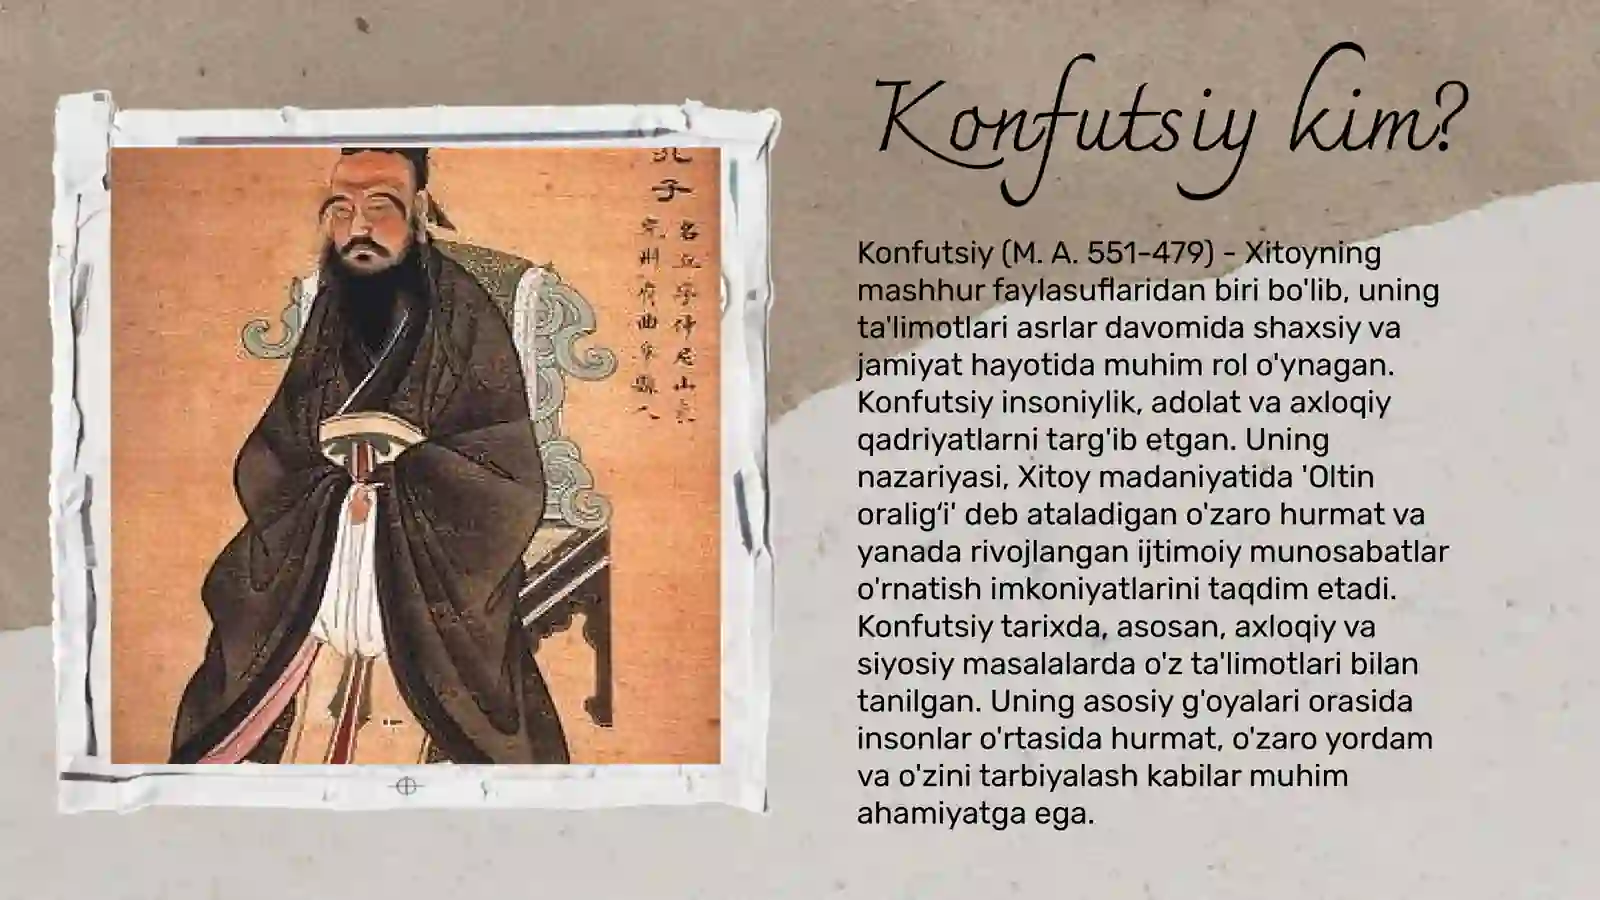 Konfutsiy kim?
Konfutsiy (M. A. 551-479) - Xitoyning
mashhur faylasuflaridan biri bo'lib, uning
ta'limotlari asrlar davomida shaxsiy va
jamiyat hayotida muhim rol o'ynagan.
Konfutsiy insoniylik, adolat va axloqiy
qadriyatlarni targ'ib etgan. Uning
nazariyasi, Xitoy madaniyatida 'Oltin
oralig‘i' deb ataladigan o'zaro hurmat va
yanada rivojlangan ijtimoiy munosabatlar
o'rnatish imkoniyatlarini taqdim etadi.
Konfutsiy tarixda, asosan, axloqiy va
siyosiy masalalarda o'z ta'limotlari bilan
tanilgan. Uning asosiy g'oyalari orasida
insonlar o'rtasida hurmat, o'zaro yordam
va o'zini tarbiyalash kabilar muhim
ahamiyatga ega.
孔子